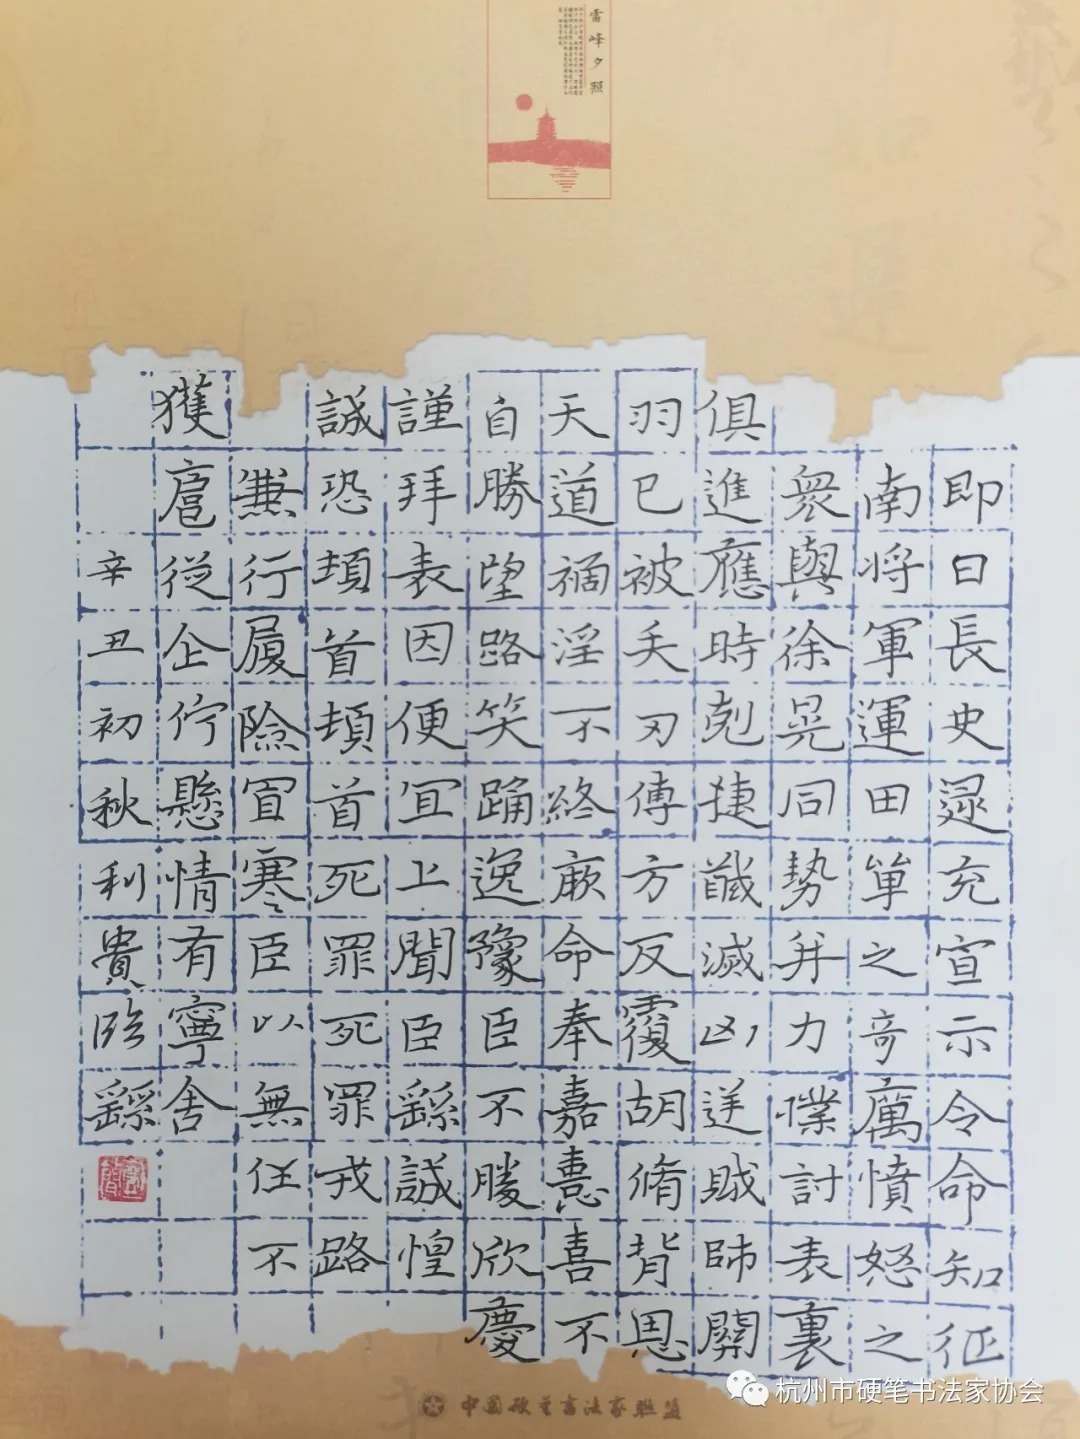 雷峰夕照
即日長史逯充宣示令命知征
南将軍運田單之奇厲憤怒之
衆與徐晃同勢并力撲討表裏
俱進應時剋捷馘滅凶逆賊帥關
羽已被矢刃傅方反覆胡脩背恩
天道禍淫不終厥命奉嘉憙喜不
自勝望路笑踊逸豫臣不勝欣慶
謹拜表因便宜上聞臣繇誠惶
誠恐頓首頓首死罪死罪戎路
兼行履險冒寒臣以無任不
獲扈從企佇懸情有寧舍
辛丑初秋利貴臨繇
中国硬笔书法家联盟
杭州市硬笔书法家协会